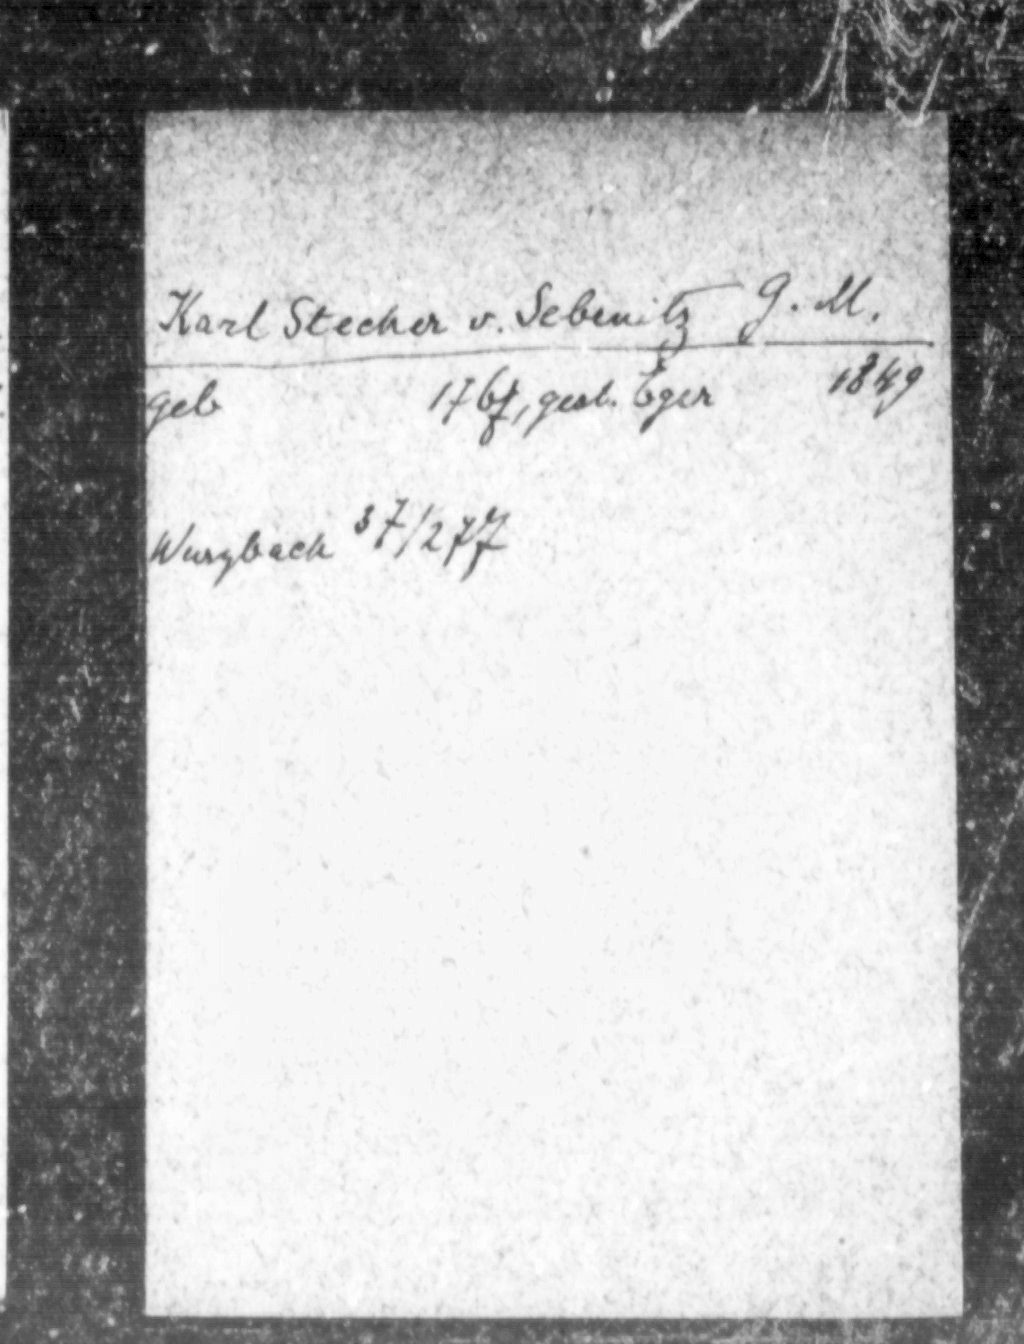 Karl Stecher v. Sebenitz G. M.
geb 1767, gest. Eger 1849
Wurzbach 37/277